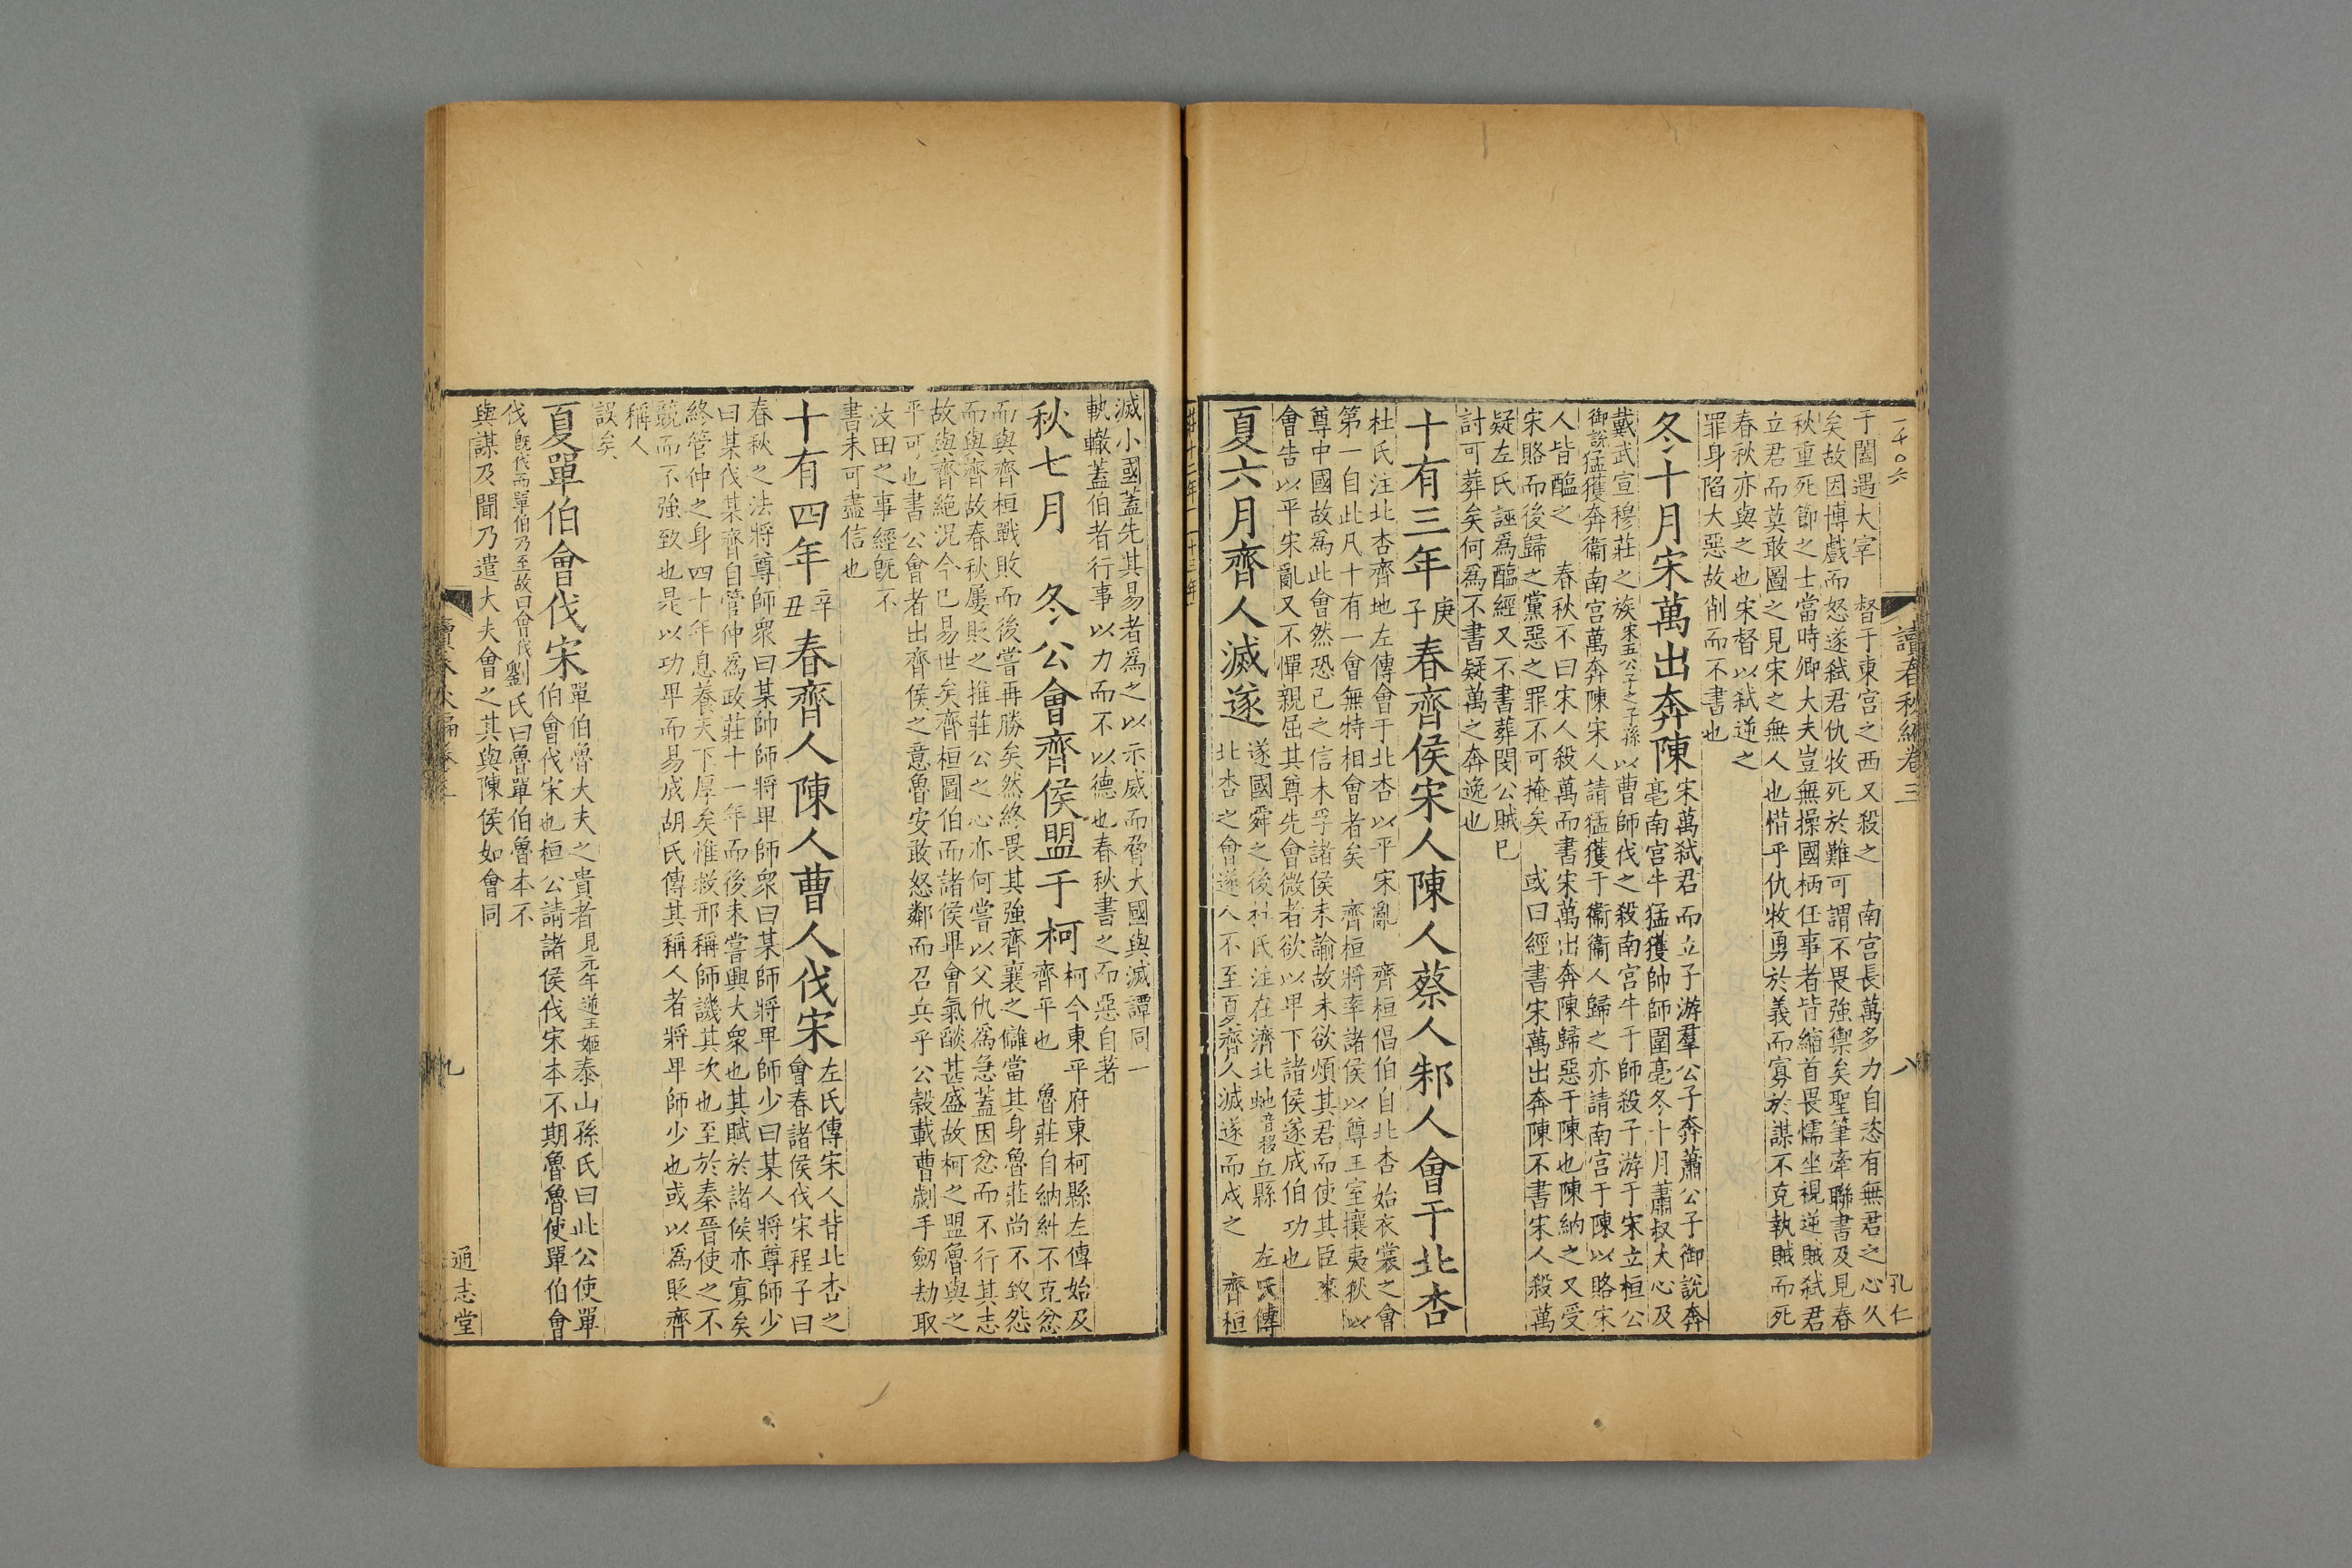 一千〇六
讀春秋編卷三
八
孔仁
于闈遇大宰督于東宫之西又殺之 南宫長萬多力自恣有無君之心久
矣故因博戲而怒遂弑君仇牧死於難可謂不畏強禦矣聖筆牽聯書及見春
秋重死節之士當時卿大夫豈無操國柄任事者皆縮首畏懦坐視逆賊弑君
立君而莫敢圖之見宋之無人也惜乎仇牧勇於義而寡於謀不克執賊而死
春秋亦與之也宋督以弑逆之
罪身陷大惡故削而不書也
冬十月宋萬出奔陳
宋萬弑君而立子游羣公子奔蕭公子御說奔
亳南宫牛猛獲帥師圍亳冬十月蕭叔大心及
戴武宣穆莊之族宋五公子之子孫以曹師伐之殺南宫牛于師殺子游于宋立桓公
御說猛獲奔衞南宫萬奔陳宋人請猛獲于衞衞人歸之亦請南宫于陳以賂宋
人皆醢之 春秋不曰宋人殺萬而書宋萬出奔陳歸惡于陳也陳納之又受
宋賂而後歸之黨惡之罪不可掩矣 或曰經書宋萬出奔陳不書宋人殺萬
疑左氏誣爲醢經又不書葬閔公賊已
討可葬矣何爲不書疑萬之奔逸也
十有三年庚子春齊侯宋人陳人蔡人邾人會于北杏
杜氏注北杏齊地左傳會于北杏以平宋亂 齊桓倡伯自北杏始衣裳之會
第一自此凡十有一會無特相會者矣 齊桓將率諸侯以尊王室攘夷狄以
尊中國故爲此會然恐已之信未孚諸侯未諭故未欲煩其君而使其臣來
會告以平宋亂又不憚親屈其尊先會微者欲以甲下諸侯遂成伯功也
夏六月齊人滅遂
遂國舜之後杜氏注在濟北虵音移丘縣 左氏傳
北杏之會遂人不至夏齊人滅遂而戍之 齊桓
滅小國蓋先其易者爲之以示威而脅大國與滅譚同一
軌轍蓋伯者行事以力而不以德也春秋書之而惡自著
秋七月 冬公會齊侯盟于柯
柯今東平府東柯縣左傳始及
齊平也 魯莊自納糾不克忿
而與齊桓戰敗而後嘗再勝矣然終畏其強齊襄之讎當其身魯莊尚不致怨
而與齊故春秋屢貶之推莊公之心亦何嘗以父仇爲急蓋因忿而不行其志
故與齊絶況今已易世矣齊桓圖伯而諸侯畢會氣燄甚盛故柯之盟魯與之
平可也書公會者出齊侯之意魯安敢怒鄰而召兵乎公榖載曹劌手劒劫取
汶田之事經旣不
書未可盡信也
十有四年辛丑春齊人陳人曹人伐宋
左氏傳宋人背北杏之
會春諸侯伐宋程子曰
春秋之法將尊師衆曰某帥師將卑師衆曰某師將卑師少曰某人將尊師少
曰某伐某齊自管仲爲政莊十一年而後未嘗興大衆也其賦於諸侯亦寡矣
終管仲之身四十年息養天下厚矣惟救邢稱師譏其次也至於秦晉使之不
競而不強致也是以功卑而易成胡氏傳其稱人者將卑師少也或以爲貶齊
稱人
誤矣
夏單伯會伐宋
單伯魯大夫之貴者見元年逆王姬泰山孫氏曰此公使單
伯會伐宋也桓公請諸侯伐宋本不期魯魯使單伯會
伐旣伐而單伯乃至故曰會伐劉氏曰魯單伯魯本不
與謀及聞乃遣大夫會之其與陳侯如會同
九
通志堂